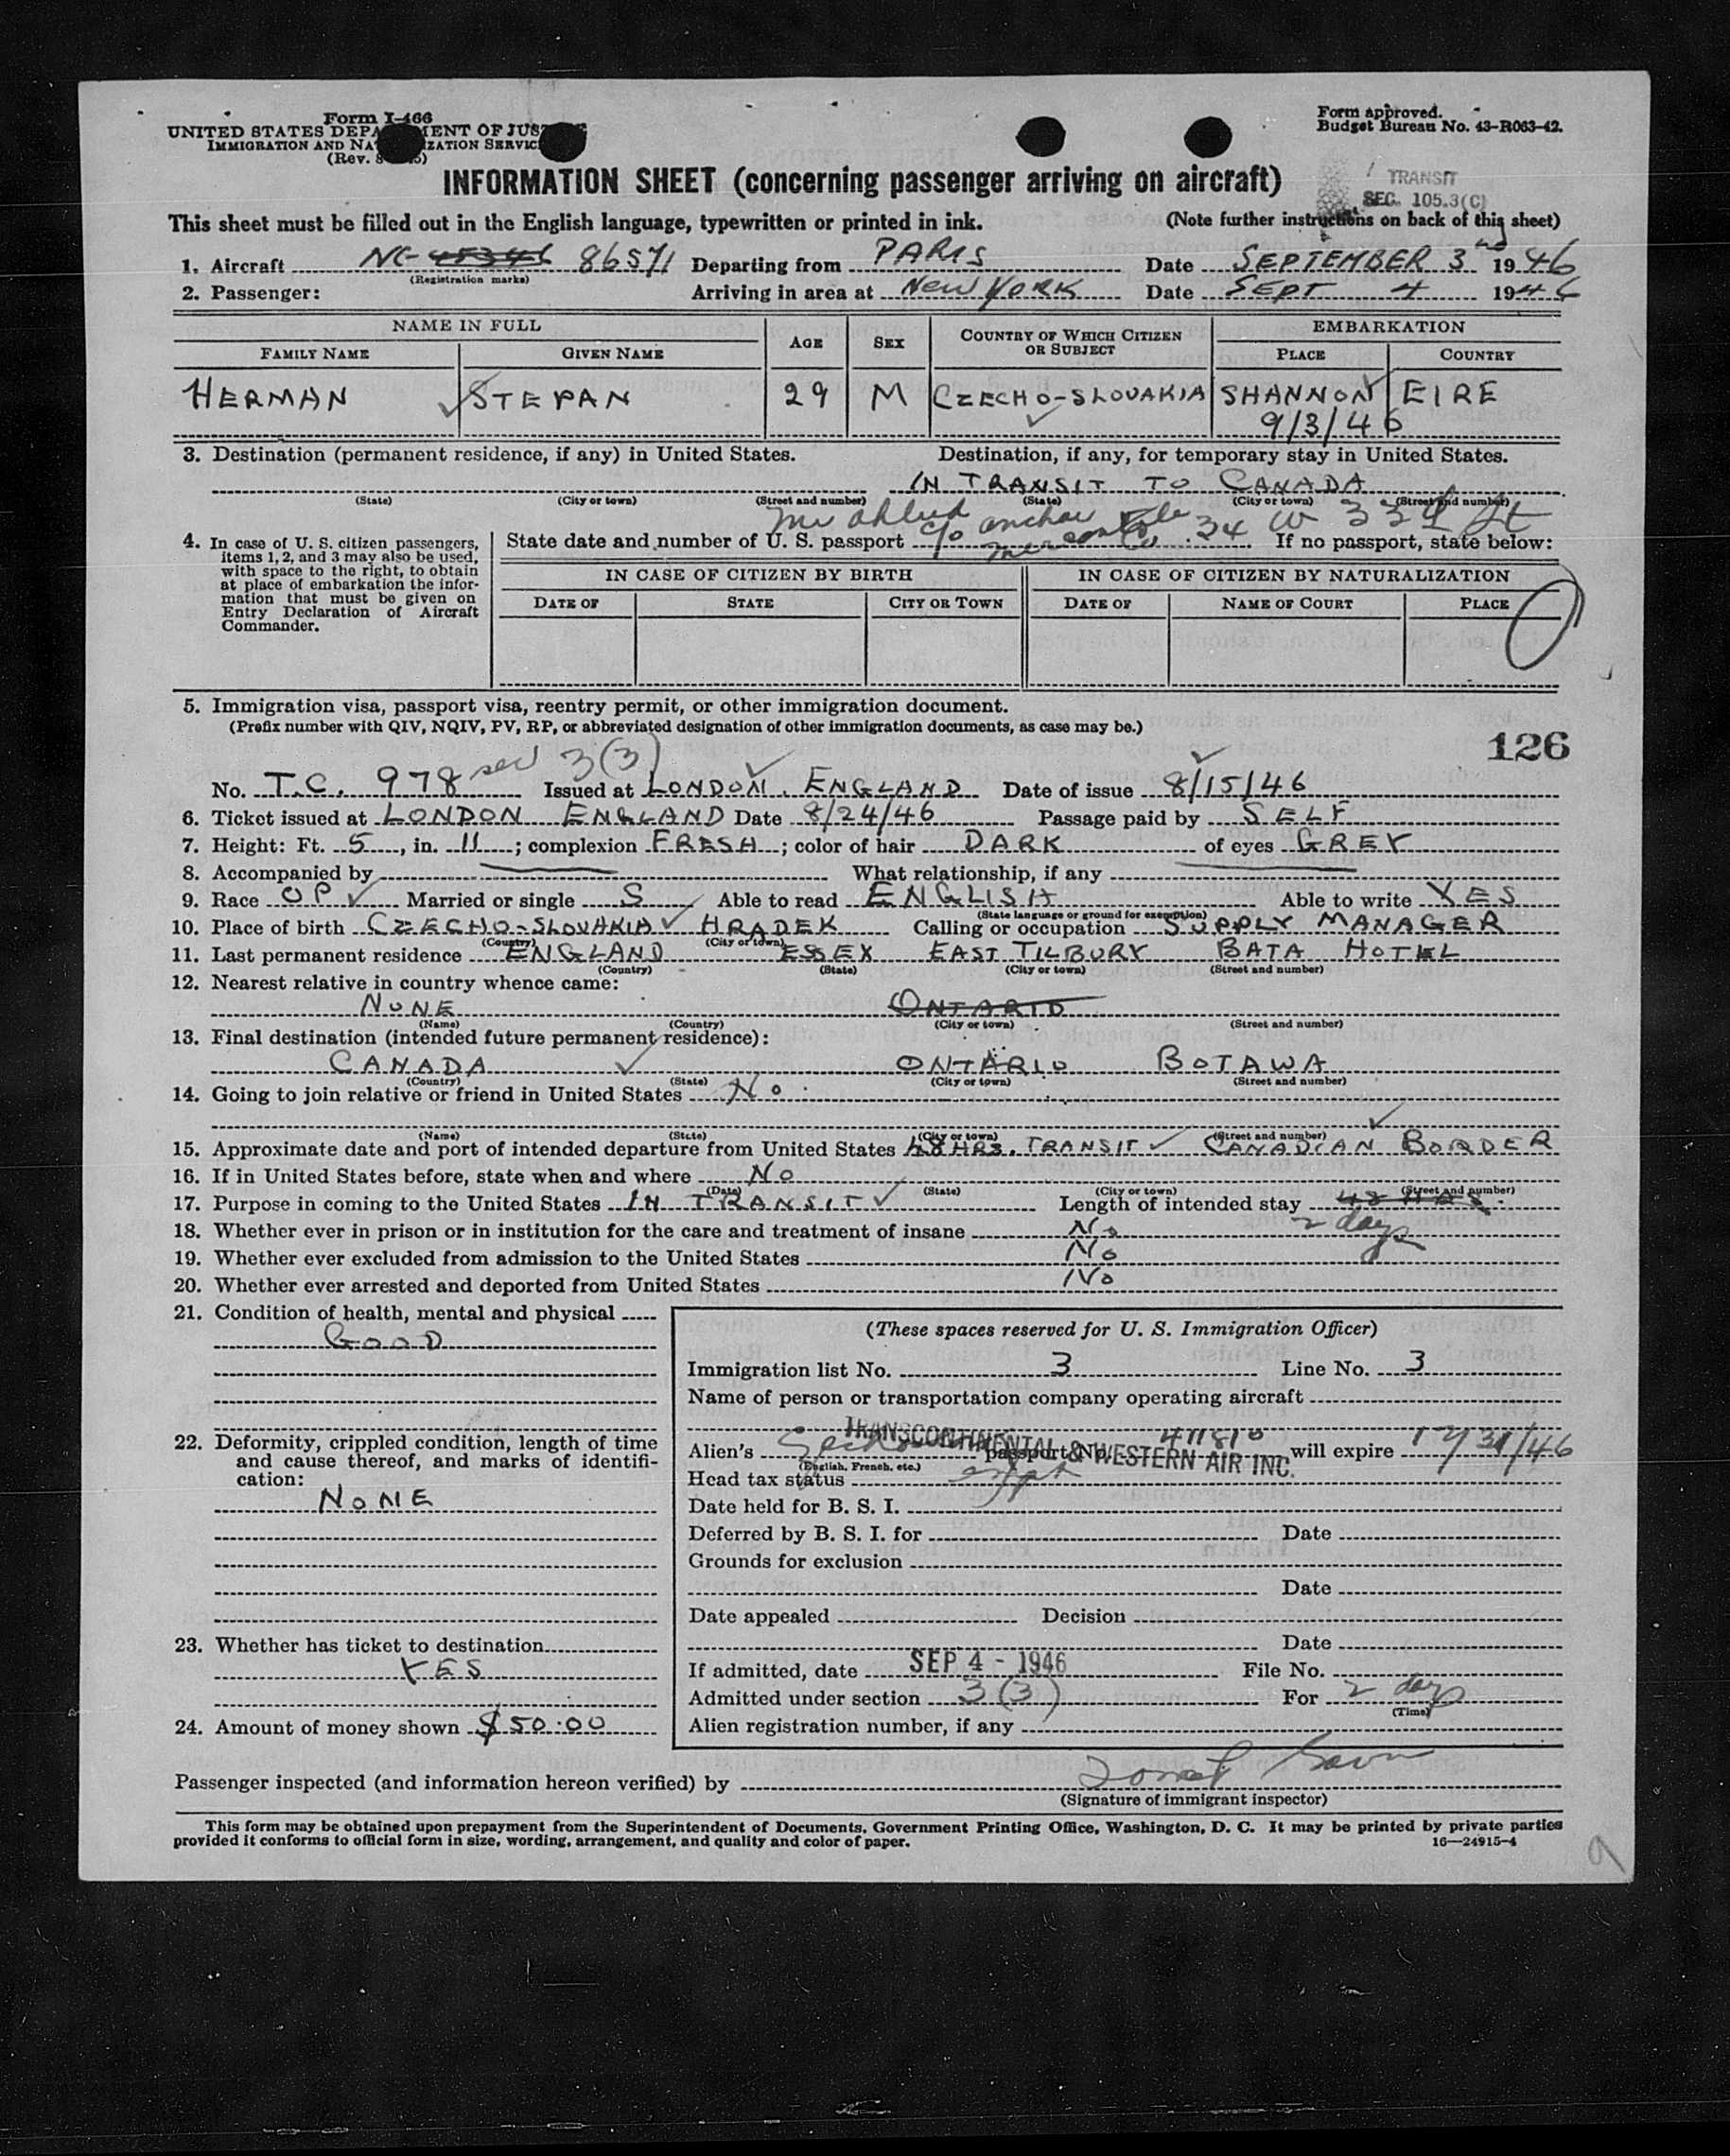 Form I-466
UNITED STATES DEPA MENT OF JUS
IMMIGRATION AND NA IZATION SERVIC
(Rev. 8 5)
Form approved.
Budget Bureau No. 43-R063-42.
INFORMATION SHEET (concerning passenger arriving on aircraft)
TRANSIT
SEC. 105.3(C)
This sheet must be filled out in the English language, typewritten or printed in ink. (Note further instructions on back of this sheet)
1. Aircraft NC- 86571 Departing from PARIS Date SEPTEMBER 3 1946
(Registration marks)
2. Passenger: Arriving in area at NEW YORK Date SEPT 4 1946
NAME IN FULL AGE SEX COUNTRY OF WHICH CITIZEN OR SUBJECT EMBARKATION
FAMILY NAME GIVEN NAME PLACE COUNTRY
HERMAN STEPAN 29 M CZECHO-SLOVAKIA SHANNON EIRE
9/3/46
3. Destination (permanent residence, if any) in United States. Destination, if any, for temporary stay in United States.
IN TRANSIT TO CANADA
(State) (City or town) (Street and number) (State) (City or town) (Street and number)
c/o 34 W 33d St
4. In case of U. S. citizen passengers, items 1, 2, and 3 may also be used, with space to the right, to obtain at place of embarkation the information that must be given on Entry Declaration of Aircraft Commander.
State date and number of U. S. passport If no passport, state below:
IN CASE OF CITIZEN BY BIRTH IN CASE OF CITIZEN BY NATURALIZATION
DATE OF STATE CITY OR TOWN DATE OF NAME OF COURT PLACE
5. Immigration visa, passport visa, reentry permit, or other immigration document.
(Prefix number with QIV, NQIV, PV, RP, or abbreviated designation of other immigration documents, as case may be.)
126
No. T.C. 978 sec 3(3) Issued at LONDON, ENGLAND Date of issue 8/15/46
6. Ticket issued at LONDON ENGLAND Date 8/24/46 Passage paid by SELF
7. Height: Ft. 5, in. 11; complexion FRESH; color of hair DARK of eyes GREY
8. Accompanied by What relationship, if any
9. Race OP Married or single S Able to read ENGLISH Able to write YES
(State language or ground for exemption)
10. Place of birth CZECHO-SLOVAKIA HRADEK Calling or occupation SUPPLY MANAGER
(Country) (City or town)
11. Last permanent residence ENGLAND ESSEX EAST TILBURY BATA HOTEL
(Country) (State) (City or town) (Street and number)
12. Nearest relative in country whence came:
NONE ONTARIO
(Name) (Country) (City or town) (Street and number)
13. Final destination (intended future permanent residence):
CANADA ONTARIO BOTAWA
(Country) (State) (City or town) (Street and number)
14. Going to join relative or friend in United States No
(Name) (State) (City or town) (Street and number)
15. Approximate date and port of intended departure from United States 48 HRS. TRANSIT CANADIAN BORDER
16. If in United States before, state when and where No
(Date) (State) (City or town) (Street and number)
17. Purpose in coming to the United States IN TRANSIT Length of intended stay 48 HRS.
2 days
18. Whether ever in prison or in institution for the care and treatment of insane No
19. Whether ever excluded from admission to the United States No
20. Whether ever arrested and deported from United States No
21. Condition of health, mental and physical
GOOD
22. Deformity, crippled condition, length of time and cause thereof, and marks of identification:
NONE
23. Whether has ticket to destination
YES
24. Amount of money shown $50.00
(These spaces reserved for U. S. Immigration Officer)
Immigration list No. 3 Line No. 3
Name of person or transportation company operating aircraft
TRANSCONTINENTAL & WESTERN AIR INC.
Alien's passport No. will expire 12/31/46
(English, French, etc.)
Head tax status
Date held for B. S. I.
Deferred by B. S. I. for Date
Grounds for exclusion
Date
Date appealed Decision
Date
If admitted, date SEP 4 - 1946 File No.
Admitted under section 3(3) For 2 days
(Time)
Alien registration number, if any
Passenger inspected (and information hereon verified) by
(Signature of immigrant inspector)
This form may be obtained upon prepayment from the Superintendent of Documents, Government Printing Office, Washington, D. C. It may be printed by private parties
provided it conforms to official form in size, wording, arrangement, and quality and color of paper. 16—24915-4
9